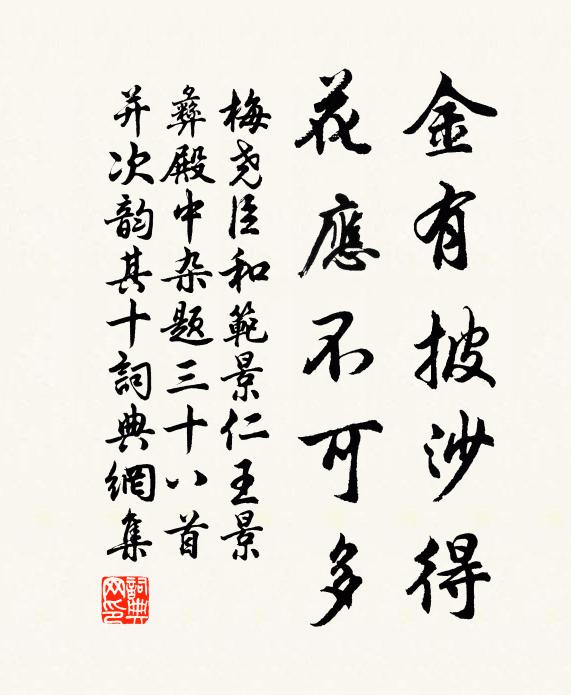 金有披沙得
花應不可多
梅尧臣和範景仁王景
彝殿中杂题三十八首
并次韵其十詞典網集
詞典
网印